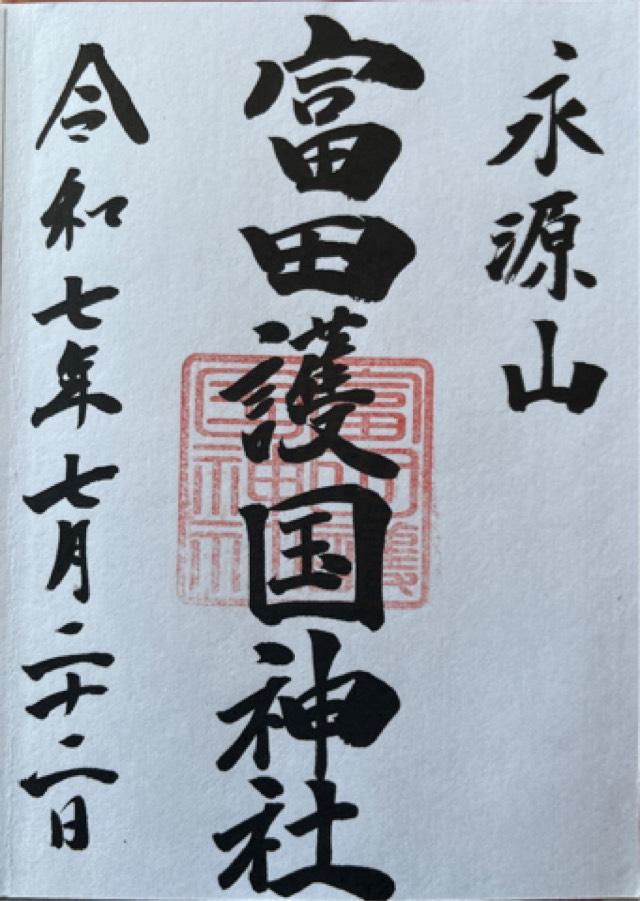 永源山
富田護国神社
令和七年七月二十二日